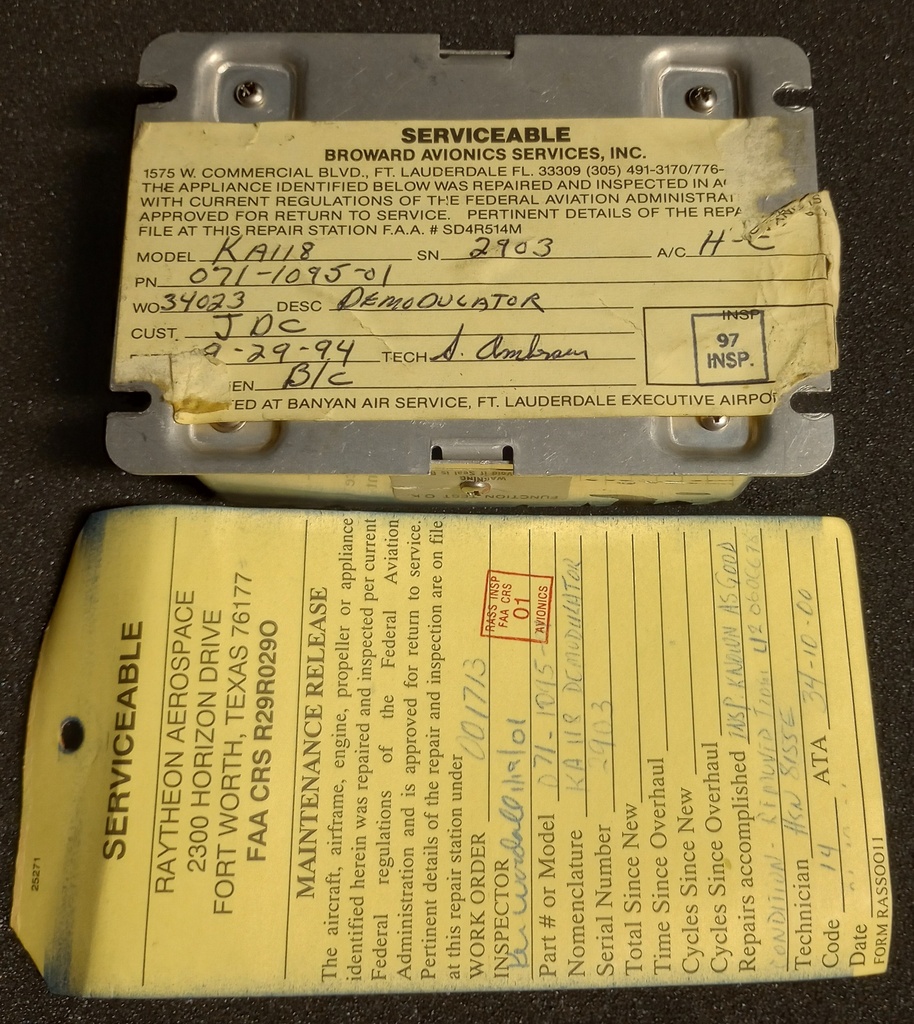 SERVICEABLE
BROWARD AVIONICS SERVICES, INC.
1575 W. COMMERCIAL BLVD., FT. LAUDERDALE FL. 33309 (305) 491-3170/776-
THE APPLIANCE IDENTIFIED BELOW WAS REPAIRED AND INSPECTED IN A
WITH CURRENT REGULATIONS OF THE FEDERAL AVIATION ADMINISTRAT
APPROVED FOR RETURN TO SERVICE. PERTINENT DETAILS OF THE REPA
FILE AT THIS REPAIR STATION F.A.A. # SD4R514M
MODEL KA118 SN 2903 A/C H-C
PN 071-1095-01
WO 34023 DESC DEMODULATOR
CUST. JDC
9-29-94 TECH
INSP
97
INSP.
EN B/C
ED AT BANYAN AIR SERVICE, FT. LAUDERDALE EXECUTIVE AIRPO
WARNING
FUNCTION TEST OK
25271
SERVICEABLE
RAYTHEON AEROSPACE
2300 HORIZON DRIVE
FORT WORTH, TEXAS 76177
FAA CRS R29R029O
MAINTENANCE RELEASE
The aircraft, airframe, engine, propeller or appliance
identified herein was repaired and inspected per current
Federal regulations of the Federal Aviation
Administration and is approved for return to service.
Pertinent details of the repair and inspection are on file
at this repair station under
WORK ORDER 001713
INSPECTOR
RASS INSP
FAA CRS
01
AVIONICS
Part # or Model 071-1095-
Nomenclature KA 118 DEMODULATOR
Serial Number 2903
Total Since New
Time Since Overhaul
Cycles Since New
Cycles Since Overhaul
Repairs accomplished INSP. KNOWN AS GOOD
CONDITION - REMOVED FROM
Technician
Code 14 ATA 34-10-00
Date
FORM RASSO011